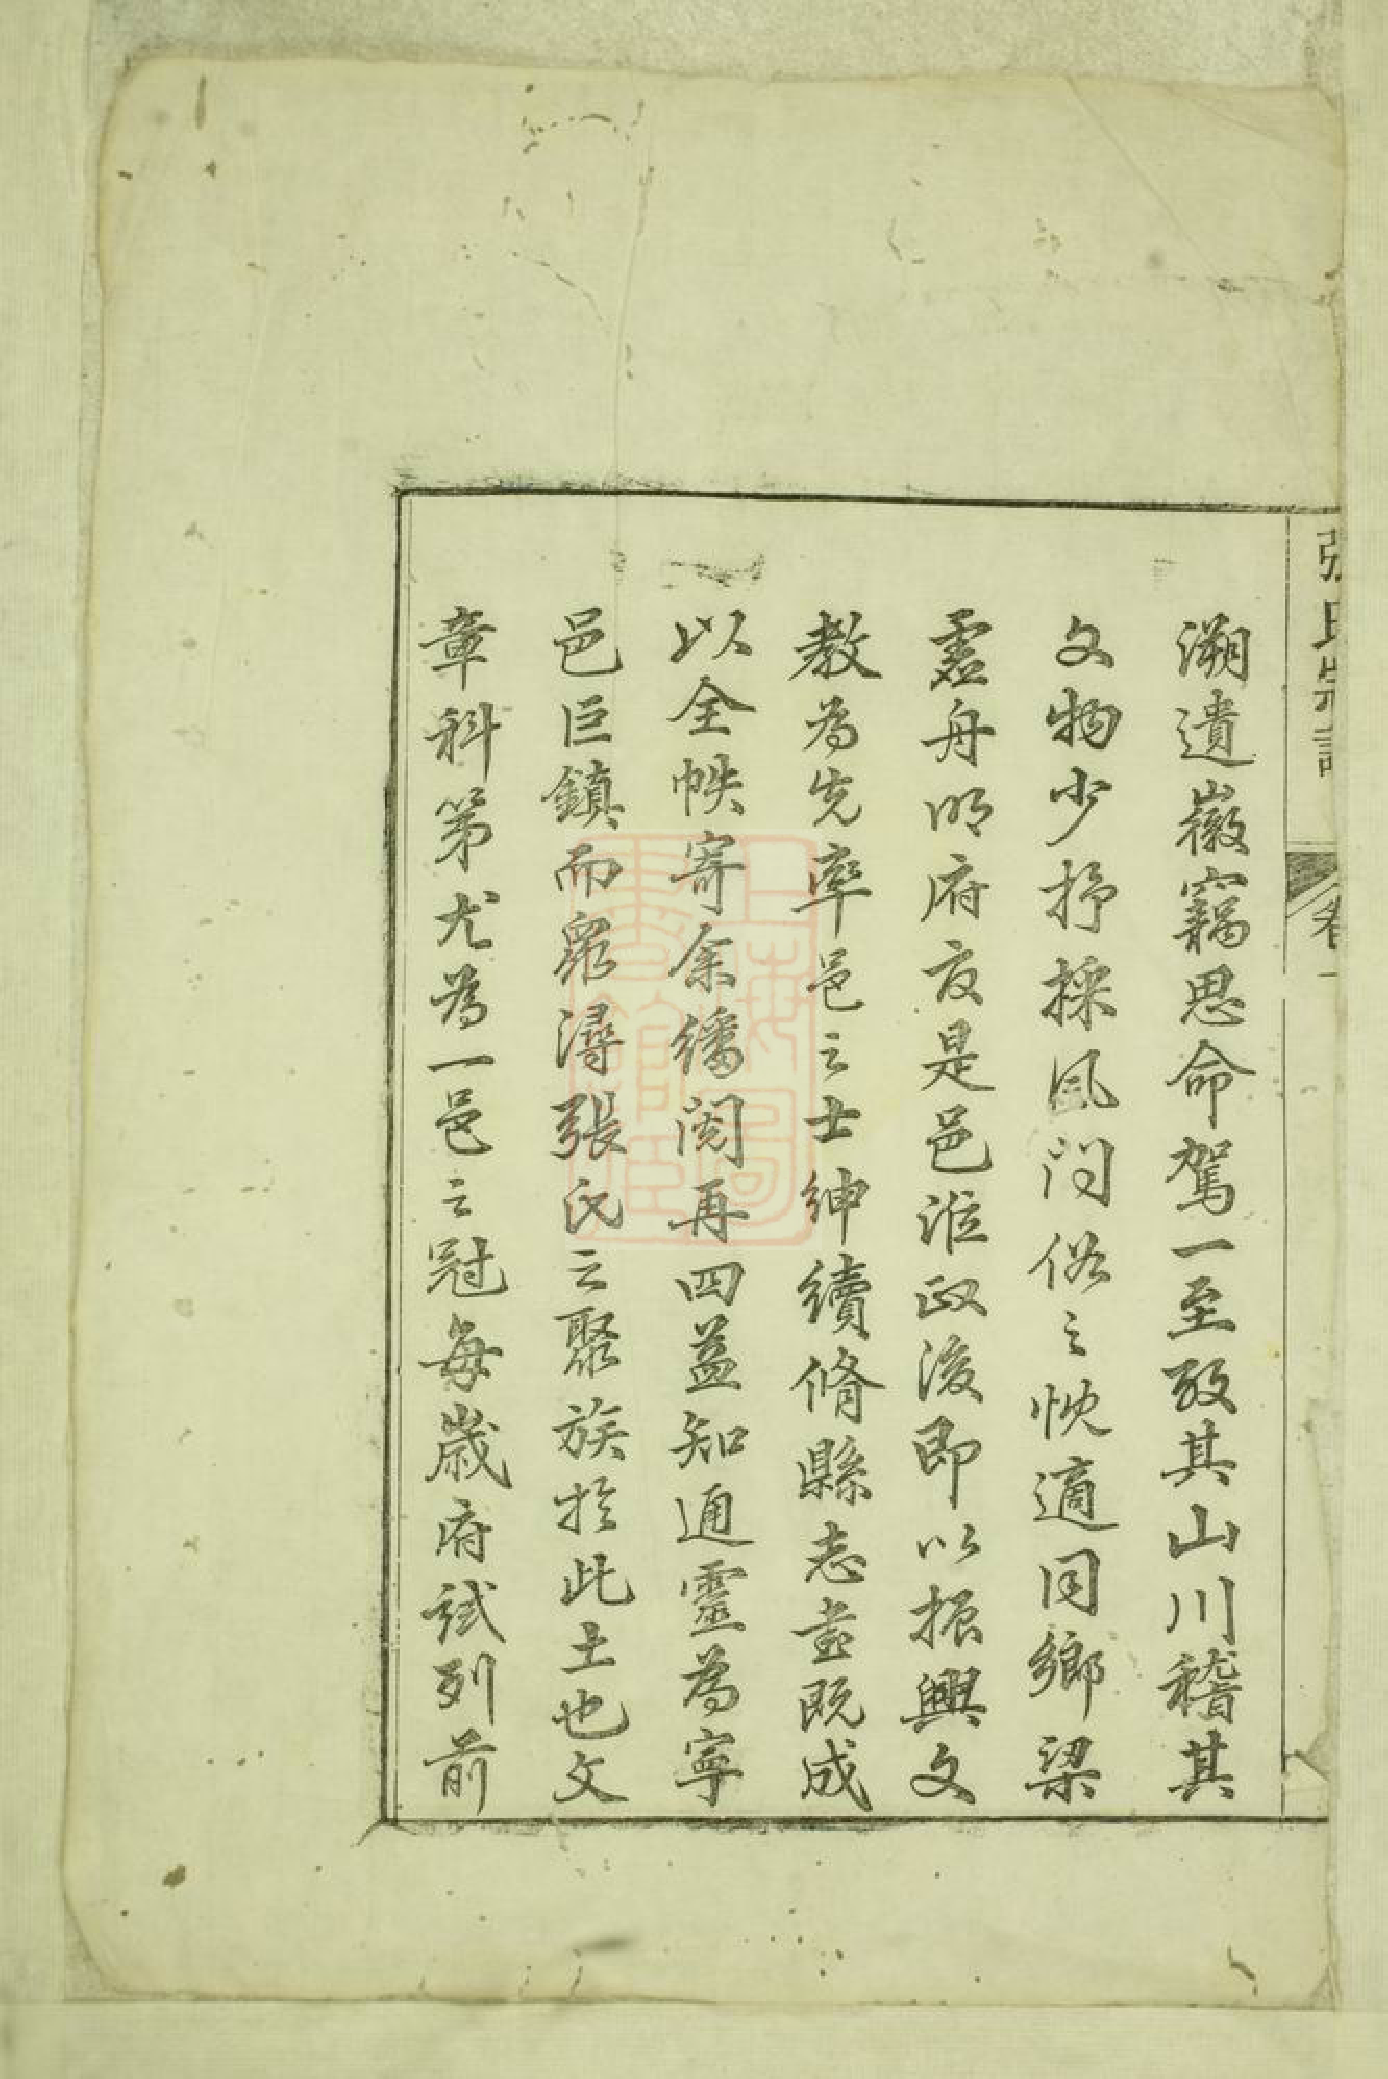 張氏宗譜 卷一
溯遺徽竊思命駕一至攷其山川稽其
文物少抒採風問俗之忱適同鄉梁
虛舟明府宰是邑涖政後即以振興文
教為先率邑之士紳續脩縣志書既成
以全帙寄余繙閱再四益知通靈為寧
邑巨鎮而眾潯張氏之聚族於此土也文
章科第尤為一邑之冠每歲府試列前
上海圖書館藏